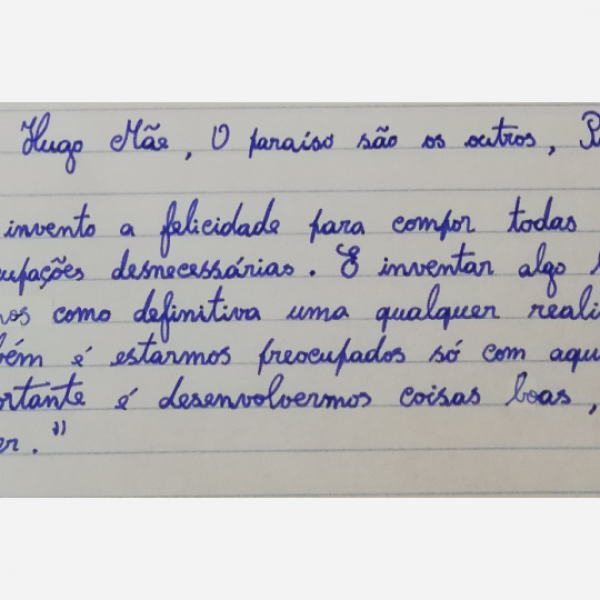 Hugo Mãe, O paraíso são os outros, P
invento a felicidade para compor todas
upações desnecessárias. E inventar algo
mos como definitiva uma qualquer reali
bém é estarmos preocupados só com aqu
ortante é desenvolvermos coisas boas,
er."